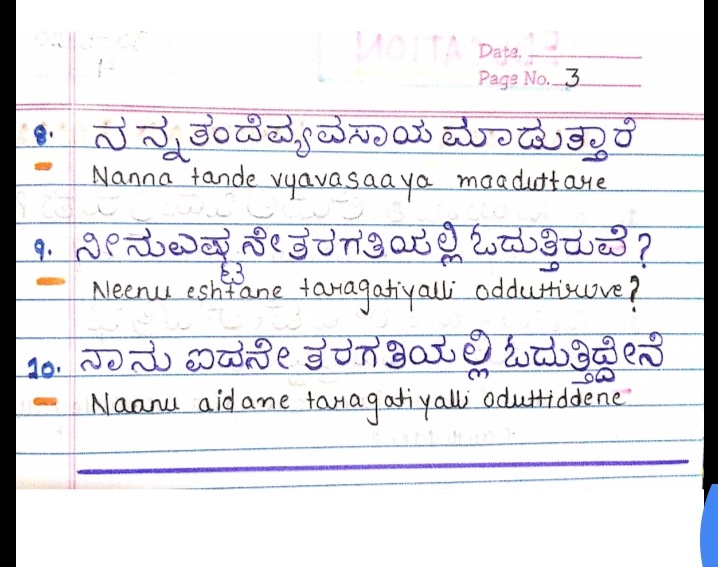 Date.
Page No. 3
8. ನನ್ನ ತಂದೆ ವ್ಯವಸಾಯ ಮಾಡುತ್ತಾರೆ
Nanna tande vyavasaaya maaduttare
9. ನೀನು ಎಷ್ಟನೇ ತರಗತಿಯಲ್ಲಿ ಓದುತ್ತಿರುವೆ?
Neenu eshtane taragatiyalli odduttiruve?
10. ನಾನು ಐದನೇ ತರಗತಿಯಲ್ಲಿ ಓದುತ್ತಿದ್ದೇನೆ
Naanu aidane taragatiyalli oduttiddene